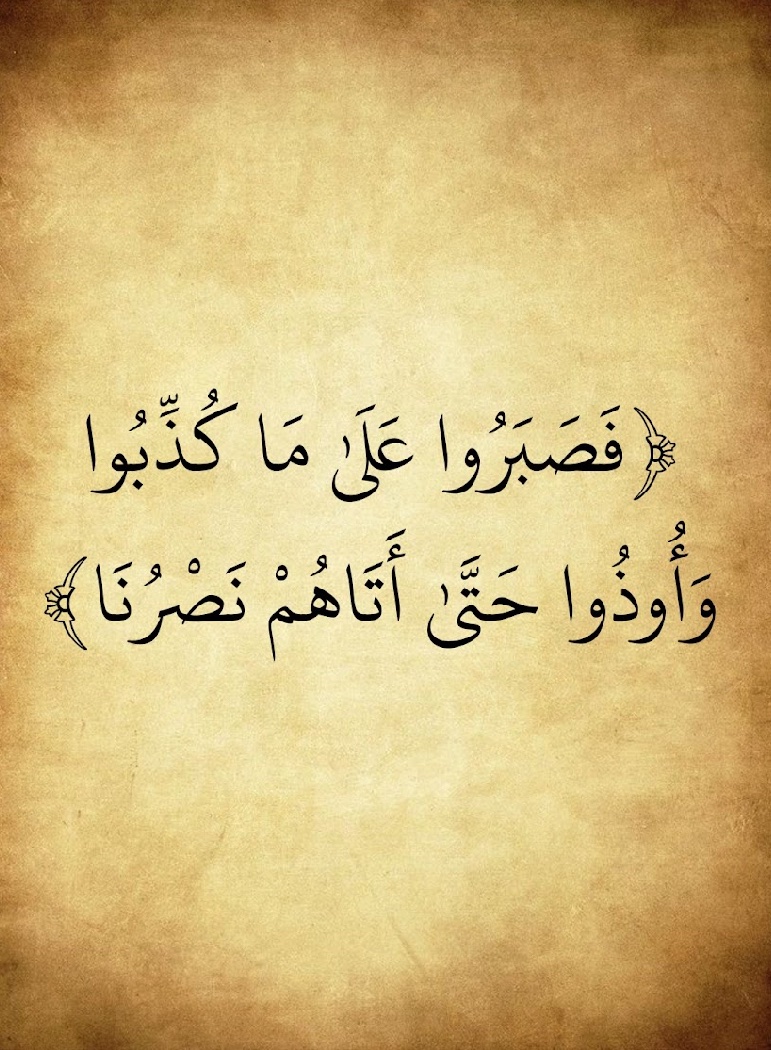 ﴿فَصَبَرُوا عَلَىٰ مَا كُذِّبُوا
وَأُوذُوا حَتَّىٰ أَتَاهُمْ نَصْرُنَا﴾